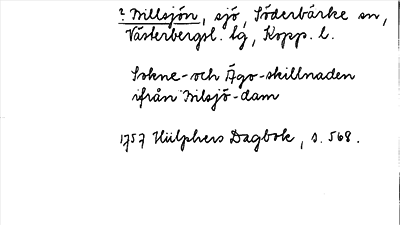 ? Billsjön, sjö, Söderbärke sn,
Västerbergsl. lg, Kopp. l.
Sokne- och Ägo-skillnaden
ifrån Bilsjö-dam
1757 Hülphers Dagbok, s. 568.